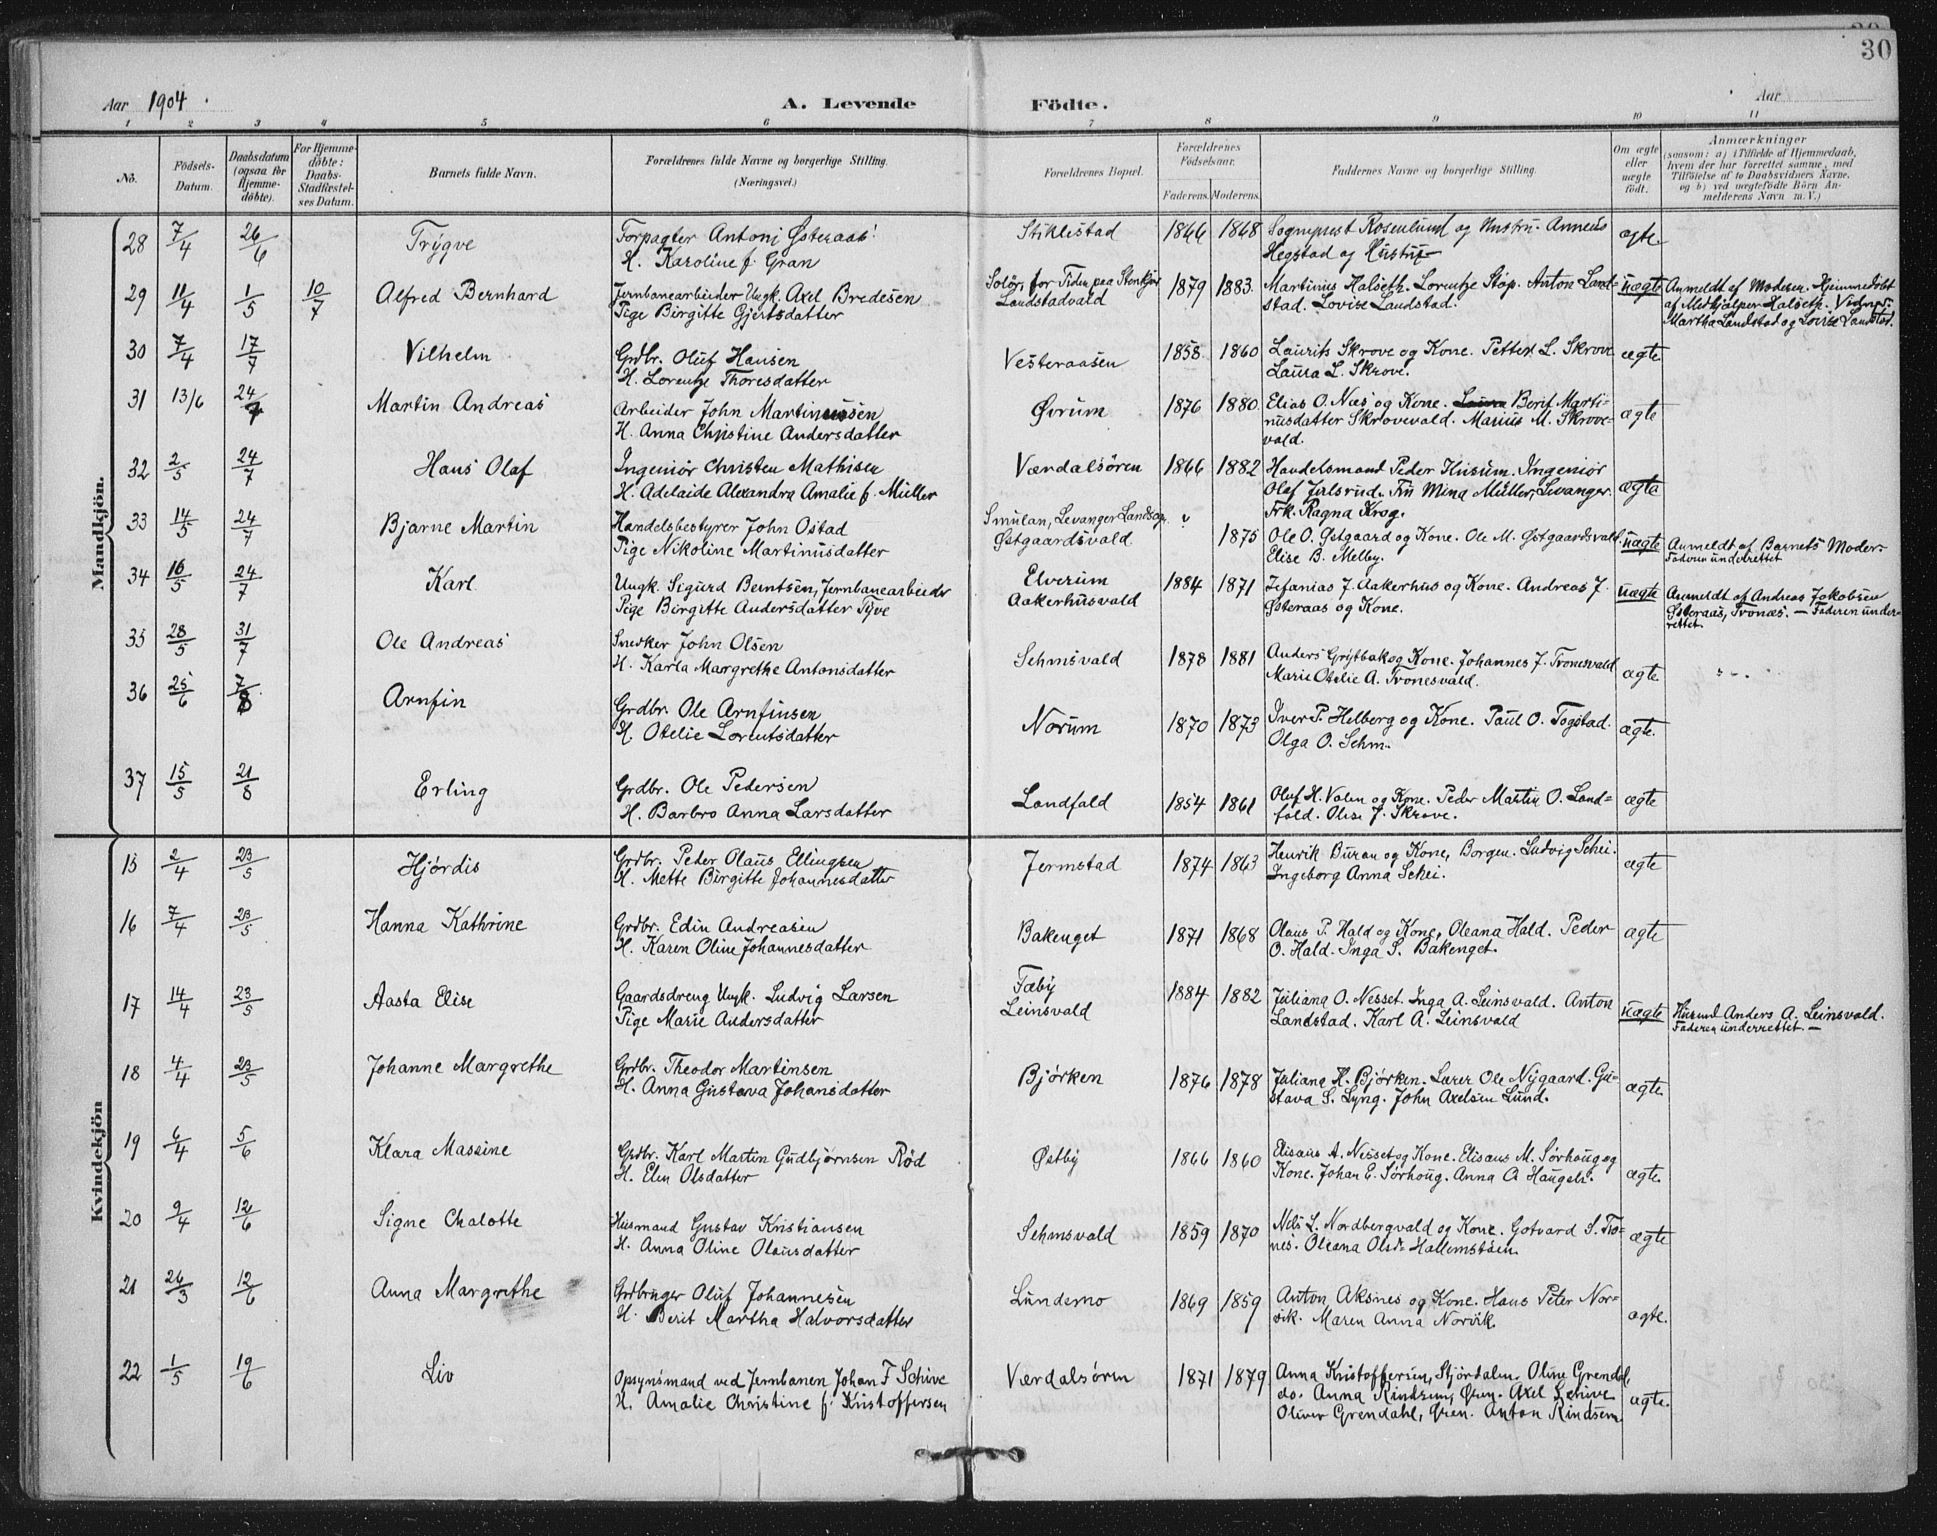 30
Aar 1904.
A. Levende Födte.
Aar
1 2 3 4 5 6 7 8 9 10 11
No.
Födsels-Datum.
Daabsdatum (ogsaa for Hjemmedöbte).
For Hjemmedöbte: Daabs-Stadfæstelses Datum.
Barnets fulde Navn.
Forældrenes fulde Navne og borgerlige Stilling. (Næringsvei.)
Forældrenes Bopæl.
Forældrenes Födselsaar.
Faderens. Moderens.
Faddernes Navne og borgerlige Stilling.
Om ægte eller uægte födt.
Anmærkninger
(saasom: a) i Tilfælde af Hjemmedaab, hvem der har forrettet samme, med Tilföielse af to Daabsvidners Navne, og b) ved uægtefödte Börn Anmelderens Navn m. V.)
Mandkjön.
28 7/4 26/6 Trygve Forpagter Antoni Østeraas Stiklestad 1866 1868 Sogneprest Rosenlund og Hustru. Anneus ægte.
H. Karoline f. Gran Hegstad og Hustru
29 11/4 1/5 10/7 Alfred Bernhard Jernbanearbeider Ungk. Axel Bredesen Solör, for Tiden paa Stenkjær 1879 1883. Martinus Halseth. Lorentze Stöp. Anton Land= uægte Anmeldt af Moderen. Hjemmedöbt
Pige Birgitte Gjertsdatter Landstadvald stad. Lovise Landstad. af Medhjælper Halseth. Vidner:
Martha Landstad og Lovise Landstad.
30 7/4 17/7 Vilhelm Grdbr. Oluf Hansen Vesteraasen 1858 1860 Laurits Skrove og Kone. Petter L. Skrove ægte
H. Lorentze Thoresdatter Laura L. Skrove.
31 13/6 24/7 Martin Andreas Arbeider John Martinussen Øvrum 1876 1880. Elias O. Næs og Kone. Berit Marti= ægte
H. Anna Christine Andersdatter nusdatter Skrovevald. Marius M. Skrove=
vald.
32 2/5 24/7 Hans Olaf Ingeniör Christen Mathisen Værdalsören 1866 1882 Handelsmand Peder Husum. Ingeniör ægte
H. Adelaide Alexandra Amalie f. Müller Olaf Frk. Mina Müller, Levanger.
Frk. Ragna Krog.
33 14/5 24/7 Bjarne Martin Handelsbestyrer John Ostad Smulan, Levanger Landsog. 1875 Ole O. Østgaard og Kone. Ole M. Østgaardsvald uægte Anmeldt af Barnets Moder.
Pige Nikoline Martinusdatter Østgaardsvald Elise B. Melby. Faderen underrettet
34 16/5 24/7 Karl Ungk. Sigurd Berntsen, Jernbanearbeider Elverum 1884 1871 Zefanias J. Aakerhus og Kone. Andreas J. uægte Anmeldt af Andreas Jakobsen
Pige Birgitte Andersdatter Tyve Aakerhusvald Østeraas og Kone. Østeraas, Trones. — Faderen under=
rettet.
35 28/5 31/7 Ole Andreas Snedker John Olsen Sehmsvald 1878 1881 Anders Griftbak og Kone. Johannes J. Tronesvald ægte
H. Karla Margrethe Antonsdatter Marie Otelie A. Tronesvald.
36 25/6 7/8 Arnfin Grdbr. Ole Arnfinsen Norum 1870 1873 Iver P. Helberg og Kone. Paul O. Togstad. ægte.
H. Otelie Lorentsdatter Olga O. Sehm.
37 15/5 21/8 Erling Grdbr. Ole Pedersen Landfald 1854 1861 Oluf H. Valen og Kone. Peder Martin O. Land= ægte
H. Barbro Anna Larsdatter fald. Olise J. Skrove.
Kvindekjön
15 2/4 23/5 Hjördis Grdbr. Peder Olaus Ellingsen Jermstad 1874 1863 Henrik Buran og Kone, Borgen. Ludvig Schei. ægte
H. Mette Birgitte Johannesdatter Ingeborg Anna Schei.
16 7/4 23/5 Hanna Kathrine Grdbr. Edin Andreasen Bakenget 1871 1868 Olaus P. Hald og Kone, Oleana Hald. Peder ægte
H. Karen Oline Johannesdatter O. Hald. Inga S. Bakenget.
17 14/4 23/5 Aasta Elise Gaardsdreng Ungk. Ludvig Larsen Fæby 1884 1882 Juliana O. Nesset. Inga A. Leinsvald. Anton uægte Husmd. Anders A. Leinsvald.
Pige Marie Andersdatter Leinsvald Landstad. Karl A. Leinsvald Faderen underrettet. —
18 4/4 23/5 Johanne Margrethe Grdbr. Theodor Martinsen Björken 1876 1878 Juliana H. Björken. Lærer Ole Nygaard. Gu= ægte.
H. Anna Gustava Johansdatter stava S. Lyng. John Axelsen Lund.
19 6/4 5/6 Klara Massine Grdbr. Karl Martin Gudbjörnsen Röd Østby 1866 1860 Elisæus A. Nesset og Kone. Elisæus M. Sörhoug og ægte.
H. Elen Olsdatter Kone. Johan E. Sörhoug. Anna O. Haugeli.
20 9/4 12/6 Signe Chalotte Husmand Gustav Kristiansen Sehmsvald 1859 1870 Nels L. Nordbergvald og Kone. Gotvard S. Tro= ægte
H. Anna Oline Olausdatter nes. Oleana Olsdr. Hallemstöen.
21 26/3 12/6 Anna Margrethe Grdbruger Oluf Johannesen Lundemo 1869 1859 Anton Aksnes og Kone. Hans Peter Nor= ægte.
H. Berit Martha Halvorsdatter vik. Maren Anna Norvik.
22 1/5 19/6 Liv Opsynsmand ved Jernbanen Johan F Schive Værdalsören 1871 1879 Anna Kristoffersen, Stjördalen. Oline Grendal, ægte.
H. Amalie Christine f. Kristoffersen do. Anna Rindsem, Ören. Axel Schive
Oliver Grendahl, Ören. Anton Rindsem